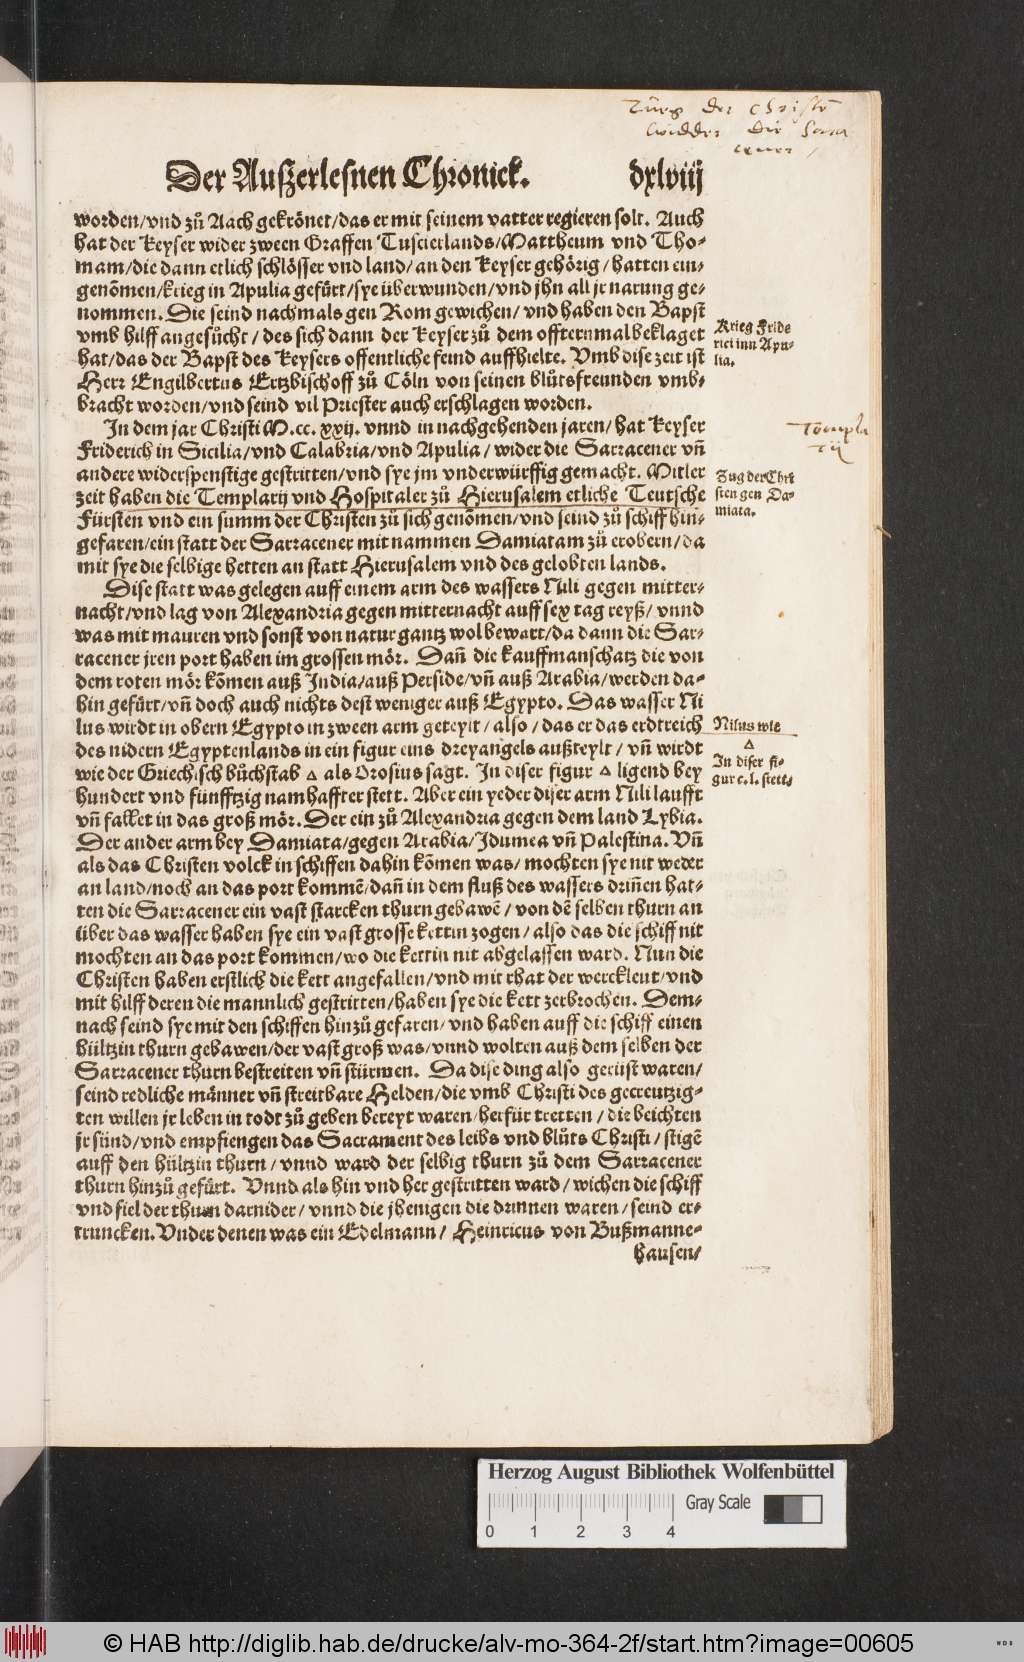 Zug der Christē
widder die Sara
cener /
Der Außerlesnen Chronick. dxlviij
worden/vnd zů Aach gekrönet/das er mit seinem vatter regieren solt. Auch
hat der Keyser wider zween Graffen Tuscierlands/Mattheum vnd Tho-
mam/die dann etlich schlösser vnd land/an den Keyser gehörig/hatten ein-
genõmen/krieg in Apulia gefürt/sye überwunden/vnd jhn all jr narung ge-
nommen. Die seind nachmals gen Rom gewichen/vnd haben den Bapst
vmb hilff angesůcht/des sich dann der Keyser zů dem offternmal beklaget
hat/das der Bapst des Keysers offentliche feind auffhielte. Vmb dise zeit ist
Herr Engilbertus Ertzbischoff zů Cöln von seinen blůtsfreunden vmb-
bracht worden/vnd seind vil Priester auch erschlagen worden.
Krieg Fride
rici inn Apu-
lia.
In dem jar Christi M.cc.xxij. vnnd in nachgehenden jaren/hat Keyser
Friderich in Sicilia/vnd Calabria/vnd Apulia/wider die Sarracener vñ
andere widerspenstige gestritten/vnd sye jm vnderwürffig gemacht. Mitler
zeit haben die Templarij vnd Hospitaler zů Hierusalem etliche Teutsche
Fürsten vnd ein summ der Christen zů sich genõmen/vnd seind zů schiff hin-
gefaren/ein statt der Sarracener mit nammen Damiatam zů erobern/da
mit sye die selbige hetten an statt Hierusalem vnd des gelobten lands.
Templa
rij
Zug der Chri
sten gen Da-
miata.
Dise statt was gelegen auff einem arm des wassers Nili gegen mitter-
nacht/vnd lag von Alexandria gegen mitternacht auff sex tag reyß/vnnd
was mit mauren vnd sonst von natur gantz wol bewart/da dann die Sar-
racener jren port haben im grossen mör. Dañ die kauffmanschatz die von
dem roten mör kõmen auß India/auß Perside/vñ auß Arabia/werden da-
hin gefürt/vñ doch auch nichts dest weniger auß Egypto. Das wasser Ni
lus wirdt in obern Egypto in zween arm geteylt/also/das er das erdtreich
des nidern Egyptenlands in ein figur eins dreyangels außteylt/vñ wirdt
wie der Griechisch bůchstab △ als Orosius sagt. In diser figur △ ligend bey
hundert vnd fünfftzig namhaffter stett. Aber ein yeder diser arm Nili laufft
vñ fallet in das groß mör. Der ein zů Alexandria gegen dem land Lybia.
Der ander arm bey Damiata/gegen Arabia/Idumea vñ Palestina. Vñ
als das Christen volck in schiffen dahin kõmen was/mochten sye nit weder
an land/noch an das port kommē/dañ in dem fluß des wassers drinnen hat-
ten die Sarracener ein vast starcken thurn gebawē/von dē selben thurn an
über das wasser haben sye ein vast grosse kettin zogen/also das die schiff nit
mochten an das port kommen/wo die kettin nit abgelassen ward. Nun die
Christen haben erstlich die kett angefallen/vnd mit rhat der werckleut/vnd
mit hilff deren die mannlich gestritten/haben sye die kett zerbrochen. Dem-
nach seind sye mit den schiffen hinzů gefaren/vnd haben auff die schiff einen
hültzin thurn gebawen/der vast groß was/vnnd wolten auß dem selben der
Sarracener thurn bestreiten vñ stürmen. Da dise ding also gerüst waren/
seind redliche männer vñ streitbare Helden/die vmb Christi des gecreutzig-
ten willen jr leben in todt zů geben bereyt waren/herfür tretten/die beichten
jr sünd/vnd empfiengen das Sacrament des leibs vnd blůts Christi/stigē
auff den hültzin thurn/vnnd ward der selbig thurn zů dem Sarracener
thurn hinzů gefürt. Vnnd als hin vnd her gestritten ward/wichen die schiff
vnd fiel der thurn darnider/vnnd die jhenigen die drinnen waren/seind er-
truncken. Vnder denen was ein Edelmann/Heinricus von Bußmanne-
hausen/
Nilus wie
△
In diser fi-
gur c.l. stett.
Herzog August Bibliothek Wolfenbüttel
Gray Scale
0 1 2 3 4
© HAB http://diglib.hab.de/drucke/alv-mo-364-2f/start.htm?image=00605